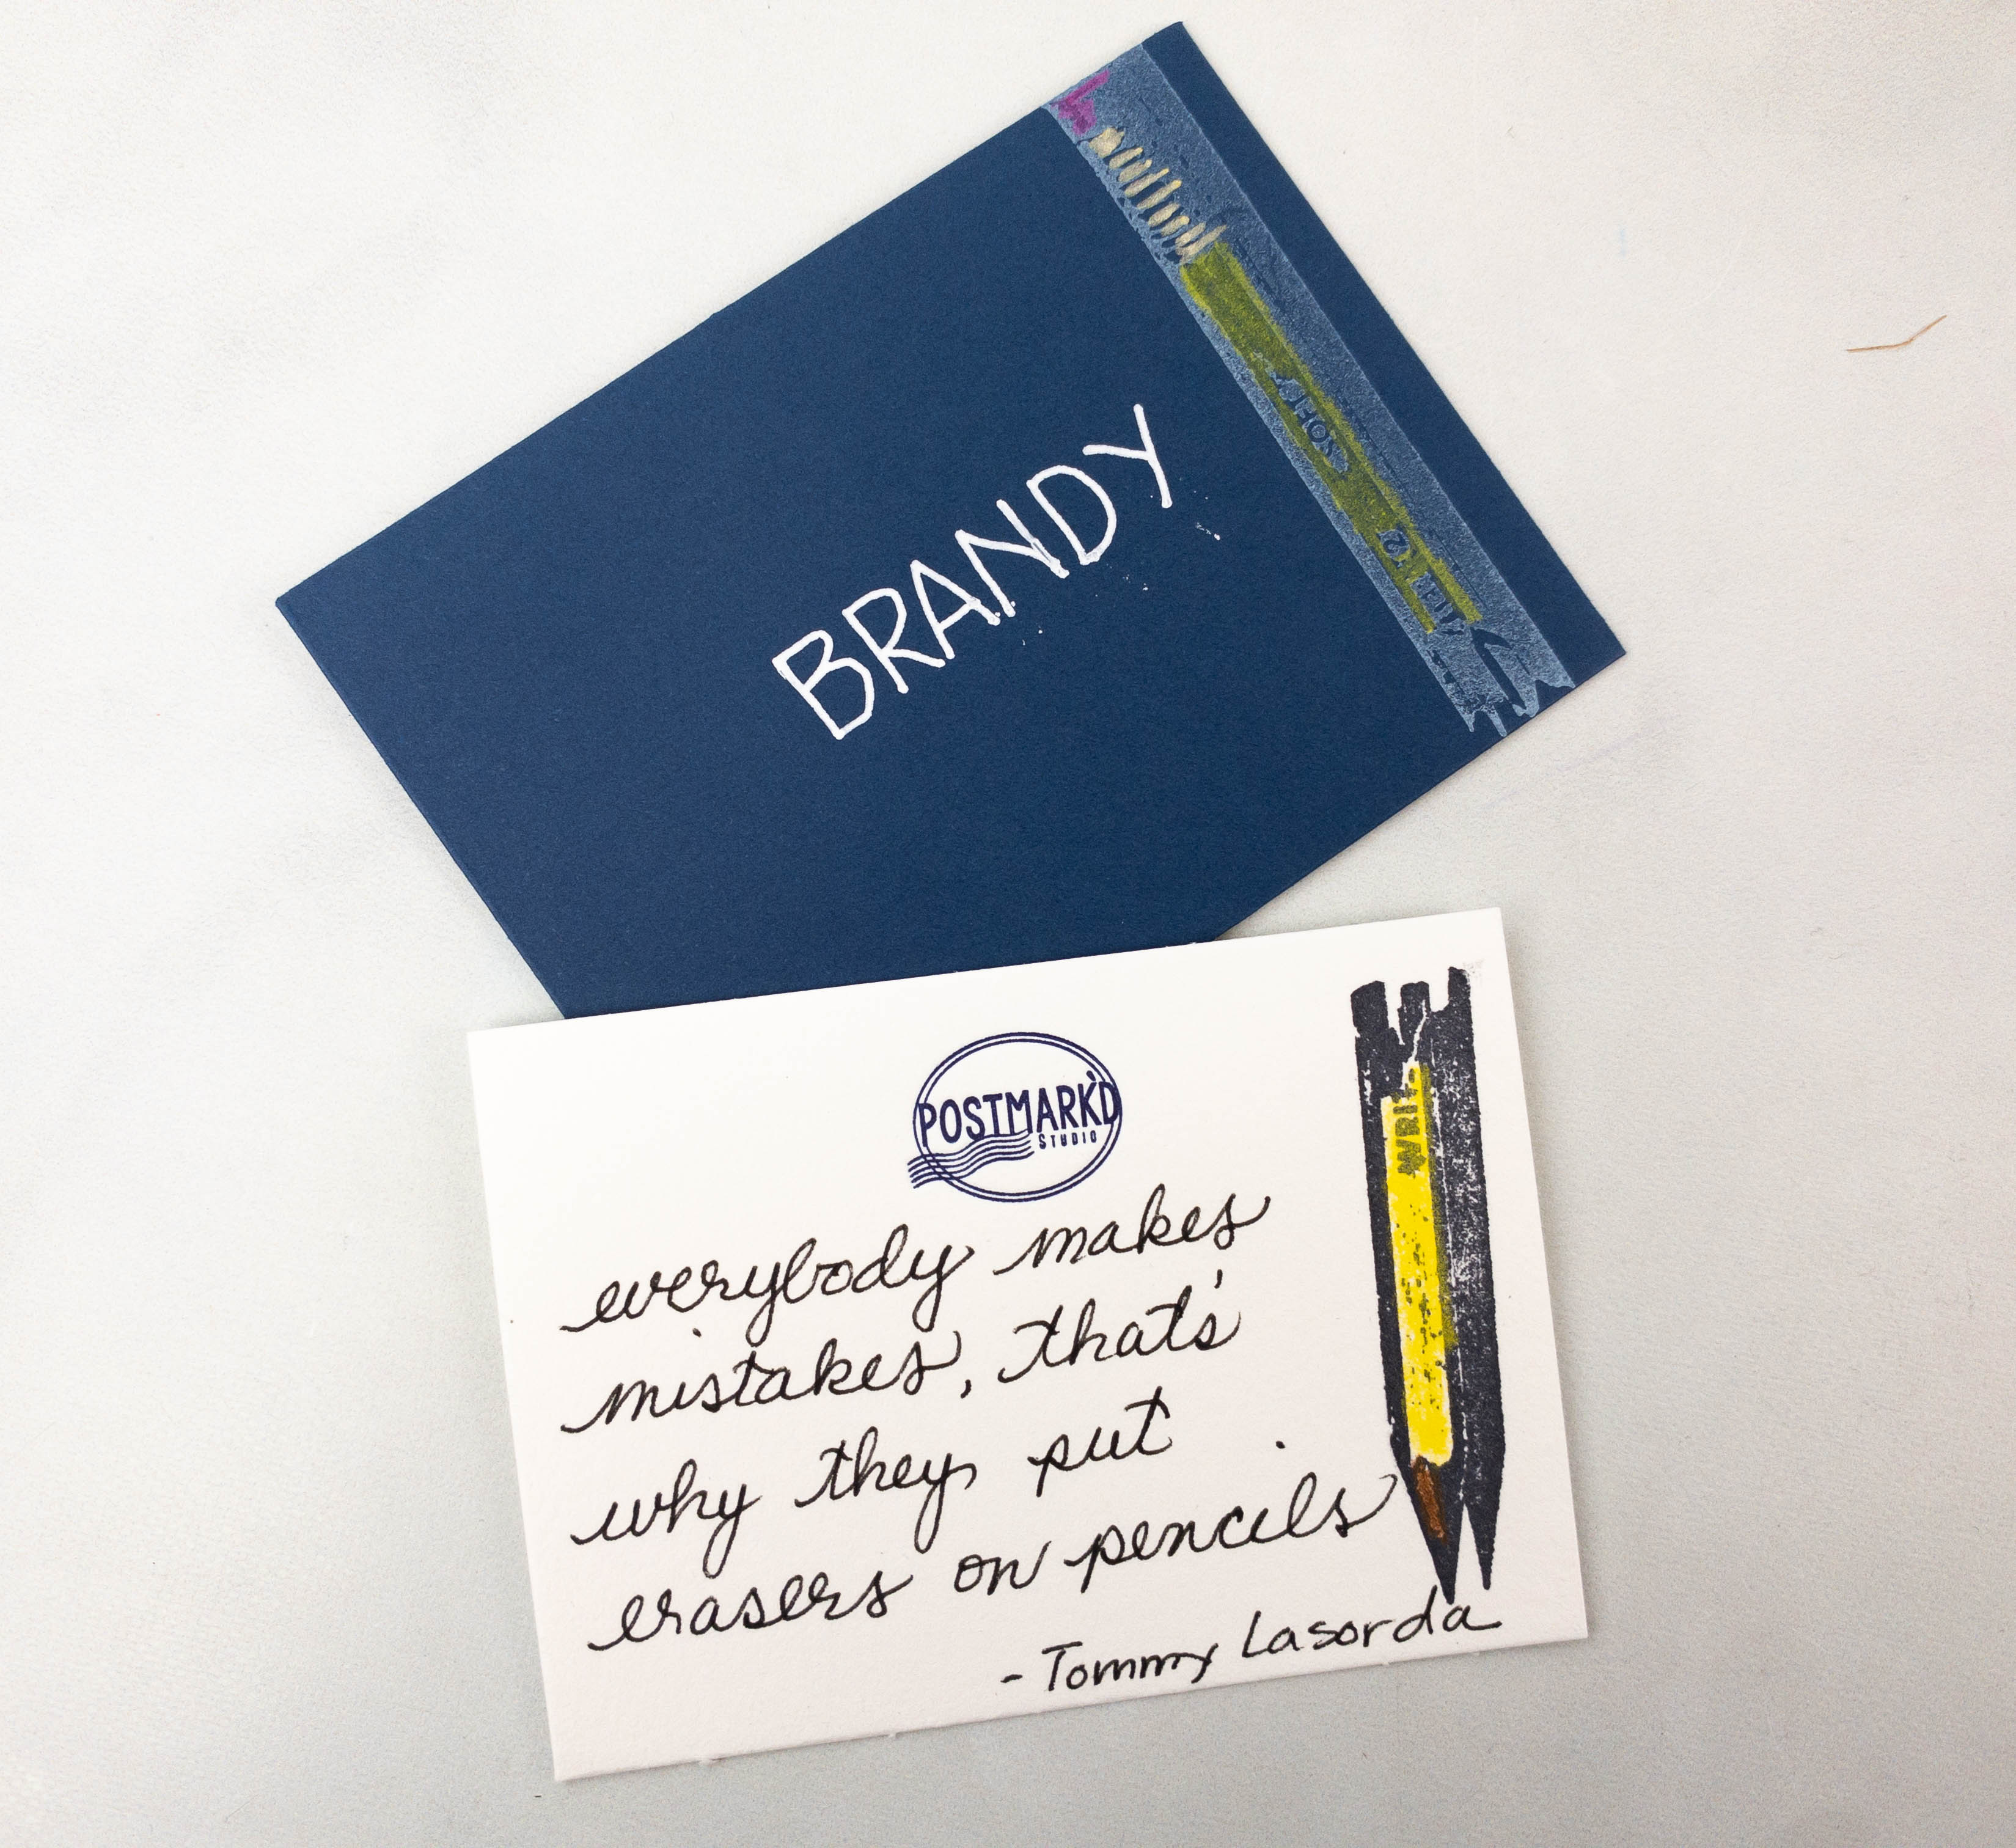 BRANDY
SOFT
POSTMARK'D
STUDIO
WRI
everybody makes
mistakes, that's
why they put
erasers on pencils
- Tommy Lasorda